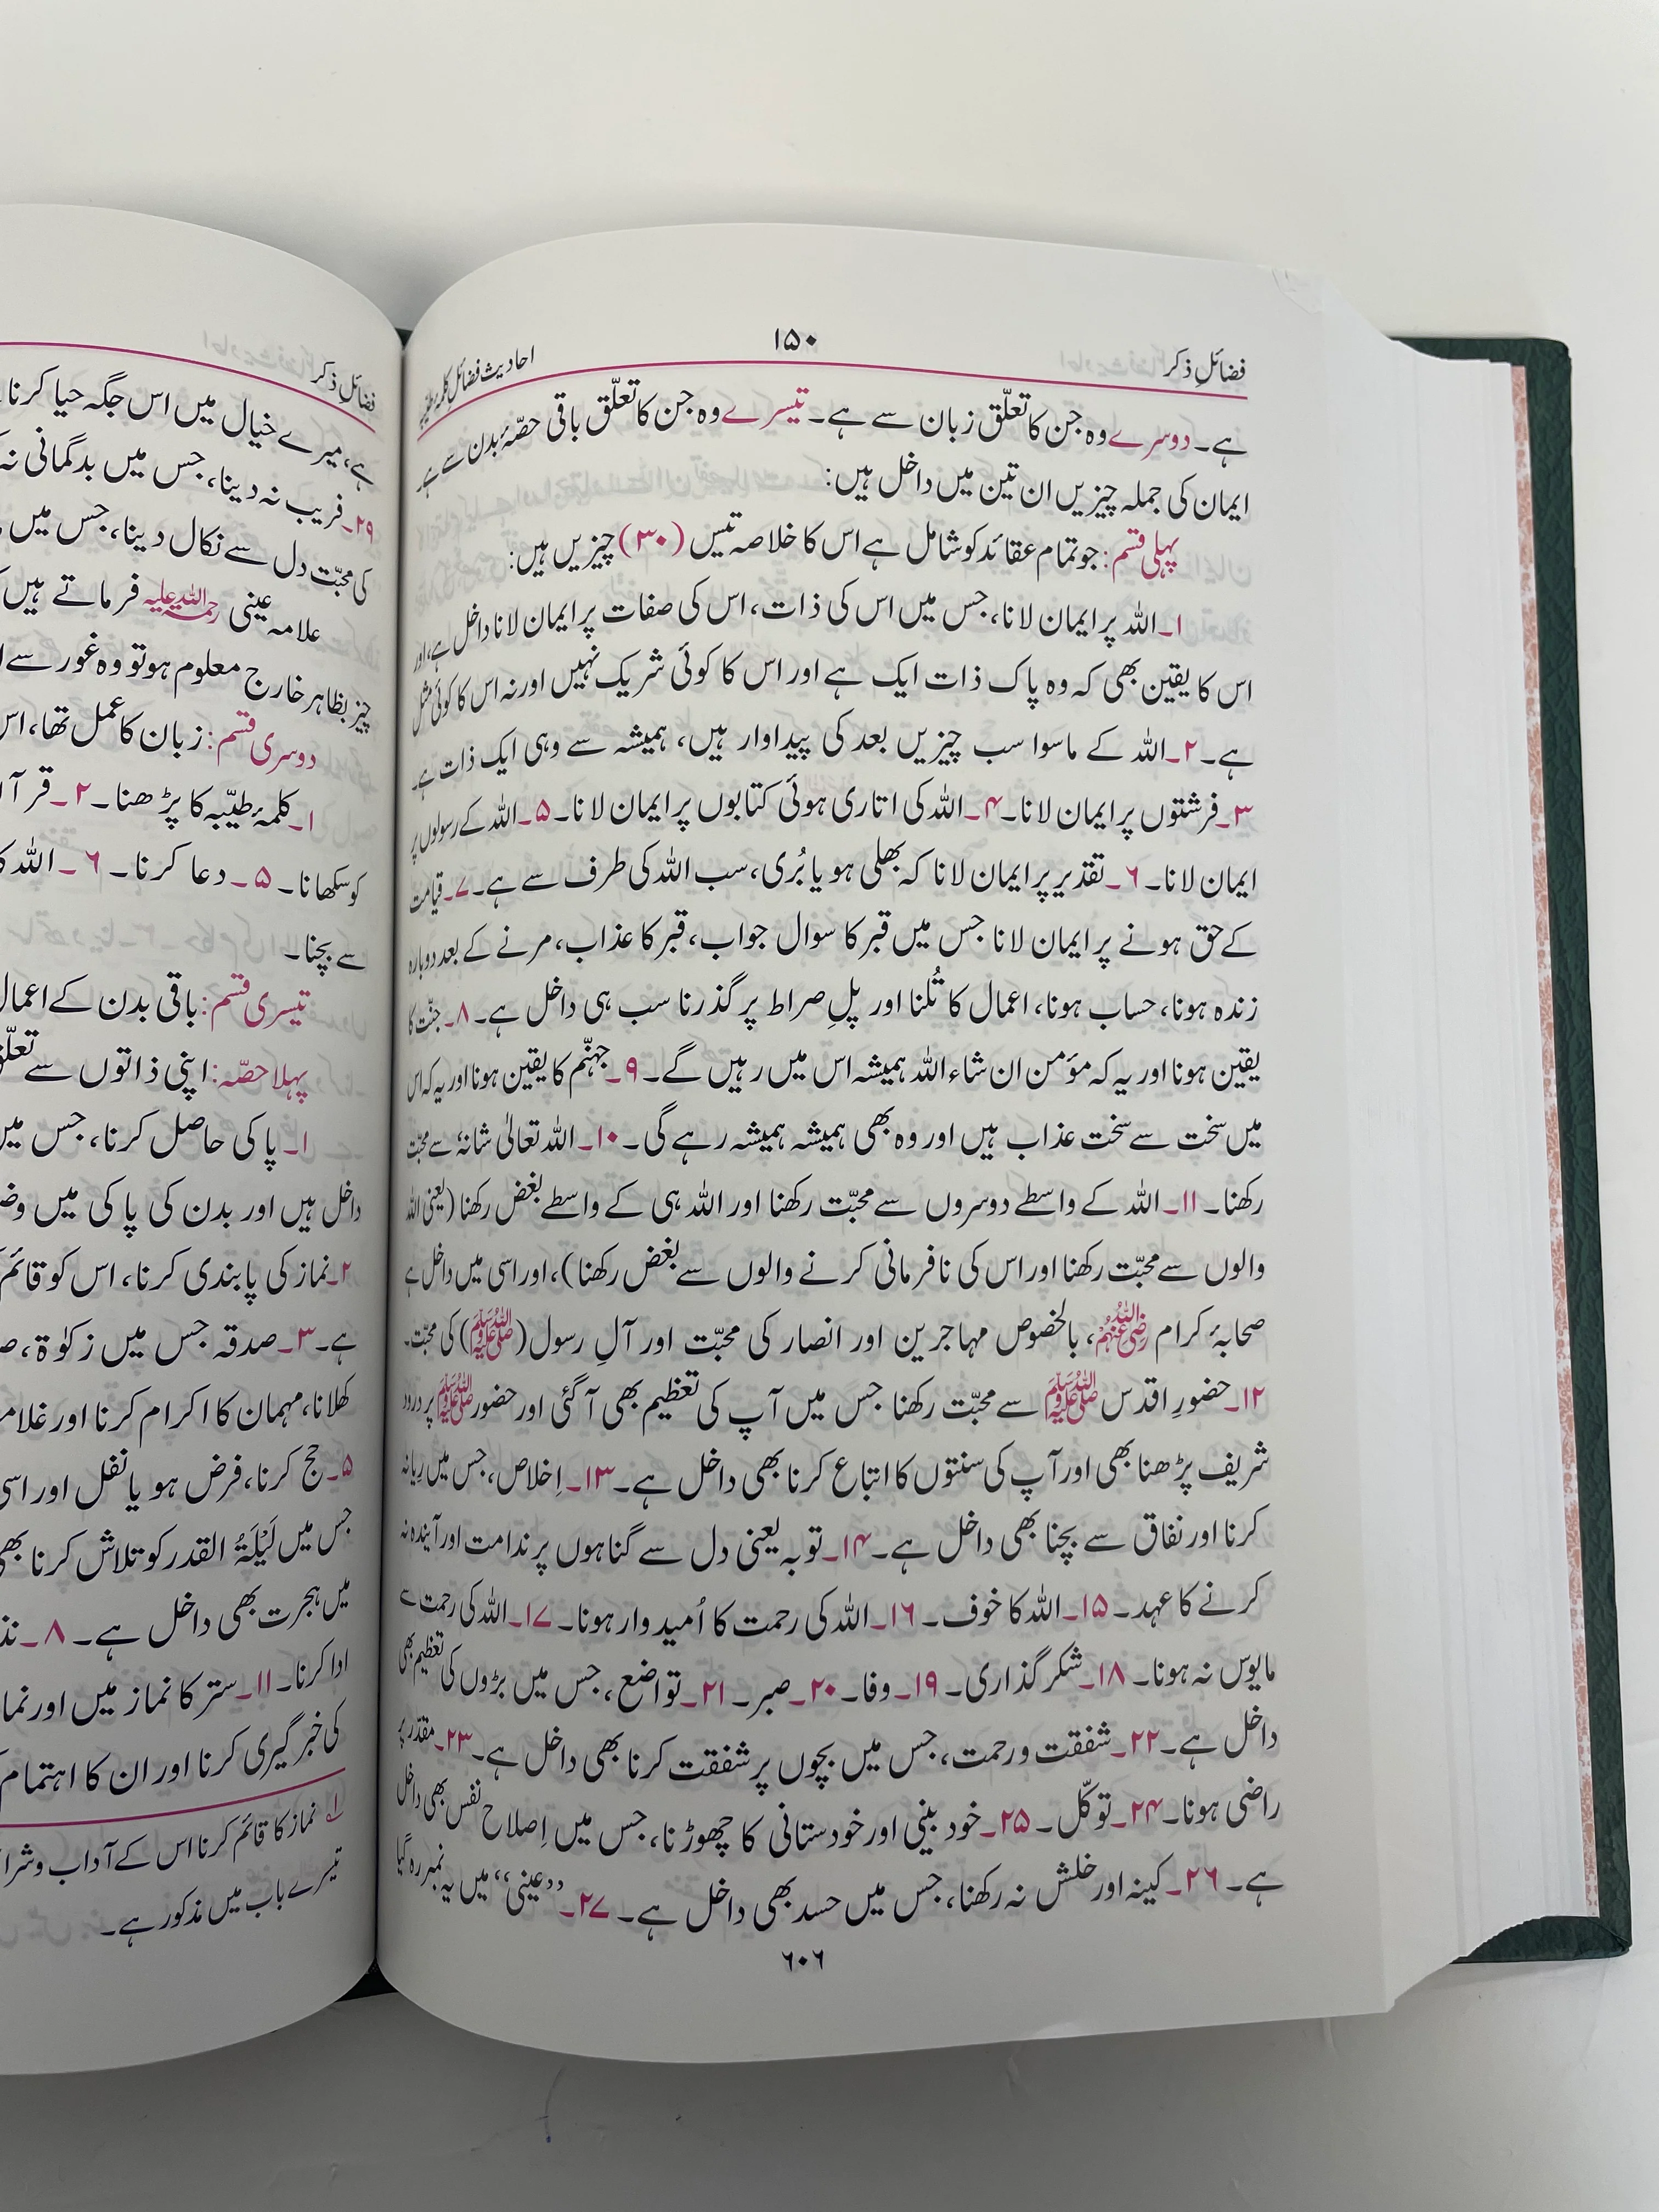 فضائلِ ذکر
۱۵۰
احادیث فضائلِ کلمۂ طیّبہ
ہے۔ دوسرے وہ جن کا تعلّق زبان سے ہے۔ تیسرے وہ جن کا تعلّق باقی حصّۂ بدن سے ہے۔
ایمان کی جملہ چیزیں ان تین میں داخل ہیں:
پہلی قسم: جو تمام عقائد کو شامل ہے اس کا خلاصہ تیس (۳۰) چیزیں ہیں:
۱۔ اللہ پر ایمان لانا، جس میں اس کی ذات، اس کی صفات پر ایمان لانا داخل ہے، اور
اس کا یقین بھی کہ وہ پاک ذات ایک ہے اور اس کا کوئی شریک نہیں اور نہ اس کا کوئی مثل
ہے۔ ۲۔ اللہ کے ماسوا سب چیزیں بعد کی پیداوار ہیں، ہمیشہ سے وہی ایک ذات ہے۔
۳۔ فرشتوں پر ایمان لانا۔ ۴۔ اللہ کی اتاری ہوئی کتابوں پر ایمان لانا۔ ۵۔ اللہ کے رسولوں پر
ایمان لانا۔ ۶۔ تقدیر پر ایمان لانا کہ بھلی ہو یا بُری، سب اللہ کی طرف سے ہے۔ ۷۔ قیامت
کے حق ہونے پر ایمان لانا جس میں قبر کا سوال جواب، قبر کا عذاب، مرنے کے بعد دوبارہ
زندہ ہونا، حساب ہونا، اعمال کا تُلنا اور پلِ صراط پر گذرنا سب ہی داخل ہے۔ ۸۔ جنّت کا
یقین ہونا اور یہ کہ مؤمن ان شاء اللہ ہمیشہ اس میں رہیں گے۔ ۹۔ جہنّم کا یقین ہونا اور یہ کہ اس
میں سخت سے سخت عذاب ہیں اور وہ بھی ہمیشہ ہمیشہ رہے گی۔ ۱۰۔ اللہ تعالیٰ شانہٗ سے محبّت
رکھنا۔ ۱۱۔ اللہ کے واسطے دوسروں سے محبّت رکھنا اور اللہ ہی کے واسطے بغض رکھنا (یعنی اللہ
والوں سے محبّت رکھنا اور اس کی نافرمانی کرنے والوں سے بغض رکھنا)، اور اسی میں داخل ہے
صحابۂ کرام رضی اللہ عنہم، بالخصوص مہاجرین اور انصار کی محبّت اور آلِ رسول (ﷺ) کی محبّت۔
۱۲۔ حضورِ اقدس ﷺ سے محبّت رکھنا جس میں آپ کی تعظیم بھی آ گئی اور حضور ﷺ پر درود
شریف پڑھنا بھی اور آپ کی سنتوں کا اتباع کرنا بھی داخل ہے۔ ۱۳۔ اِخلاص، جس میں ریا نہ
کرنا اور نفاق سے بچنا بھی داخل ہے۔ ۱۴۔ توبہ یعنی دل سے گناہوں پر ندامت اور آیندہ نہ
کرنے کا عہد۔ ۱۵۔ اللہ کا خوف۔ ۱۶۔ اللہ کی رحمت کا اُمیدوار ہونا۔ ۱۷۔ اللہ کی رحمت سے
مایوس نہ ہونا۔ ۱۸۔ شکر گذاری۔ ۱۹۔ وفا۔ ۲۰۔ صبر۔ ۲۱۔ تواضع، جس میں بڑوں کی تعظیم بھی
داخل ہے۔ ۲۲۔ شفقت و رحمت، جس میں بچوں پر شفقت کرنا بھی داخل ہے۔ ۲۳۔ مقدّر پر
راضی ہونا۔ ۲۴۔ توکّل۔ ۲۵۔ خود بینی اور خودستائی کا چھوڑنا، جس میں اِصلاحِ نفس بھی داخل
ہے۔ ۲۶۔ کینہ اور خلش نہ رکھنا، جس میں حسد بھی داخل ہے۔ ۲۷۔ ’’عینی‘‘ میں یہ نمبر رہ گیا
۶۰۶
فضائلِ ذکر
ہے، میرے خیال میں اس جگہ حیا کرنا
۲۹۔ فریب نہ دینا، جس میں بدگمانی نہ
کی محبّت دل سے نکال دینا، جس میں
علامہ عینی رحمۃ اللہ علیہ فرماتے ہیں
چیز بظاہر خارج معلوم ہو تو وہ غور سے
دوسری قسم: زبان کا عمل تھا، اس
۱۔ کلمۂ طیّبہ کا پڑھنا۔ ۲۔ قرآ
کو سکھانا۔ ۵۔ دعا کرنا۔ ۶۔ اللہ
سے بچنا۔
تیسری قسم: باقی بدن کے اعمال
پہلا حصّہ: اپنی ذاتوں سے تعلّق
۱۔ پاکی حاصل کرنا، جس میں
داخل ہیں اور بدن کی پاکی میں وض
۲۔ نماز کی پابندی کرنا، اس کو قائم
ہے۔ ۳۔ صدقہ جس میں زکوٰۃ،
کھلانا، مہمان کا اکرام کرنا اور
۵۔ حج کرنا، فرض ہو یا نفل اور اسی
جس میں لَیْلَۃُ القدر کو تلاش کرنا بھی
میں ہجرت بھی داخل ہے۔ ۸۔
ادا کرنا۔ ۱۱۔ ستر کا نماز میں اور
کی خبر گیری کرنا اور ان کا اہتمام
لے نماز کا قائم کرنا اس کے آداب و
تیسرے باب میں مذکور ہے۔